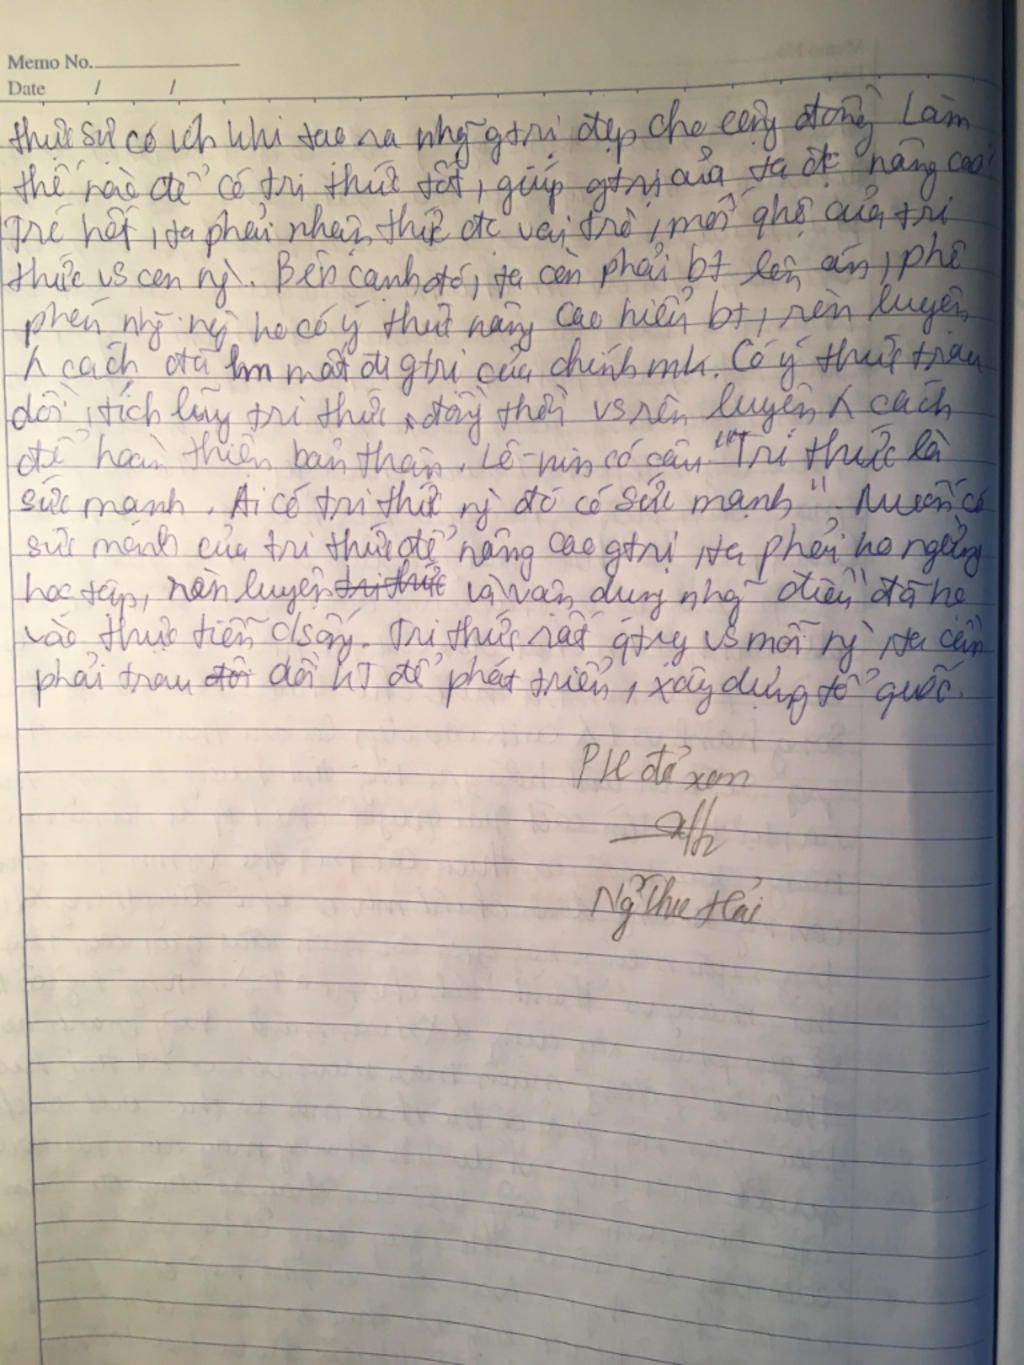 Memo No.
Date / /
thức sự có ích khi tạo ra nhữg gtrị đẹp cho cộng đồng Làm
thế nào để có tri thức tốt, giúp gtrị của ta đc nâng cao?
Trc hết, ta phải nhận thức đc vai trò, mối qhệ của tri
thức vs con ng`. Bên cạnh đó, ta còn phải bt lên án, phê
phán nhg ng` ko có ý thức nâng cao hiểu bt, rèn luyện
cách đã lm mất đi gtrị của chính mk. Có ý thức trau
dồi, tích lũy tri thức, đồng thời vs rèn luyện cách
để hoàn thiện bản thân. Lê-nin có câu "Tri thức là
sức mạnh. Ai có tri thức ng` đó có sức mạnh". Muốn có
sức mạnh của tri thức để nâng cao gtrị, ta phải ko ngừng
học tập, rèn luyện tri thức và vận dụng nhg~ điều đã học
vào thực tiễn đsống. Tri thức rất qtrg vs mỗi ng`, ta cần
phải trau dồi KT để phát triển, xây dựng tổ quốc.
PH đã xem
Ng Thu Hải